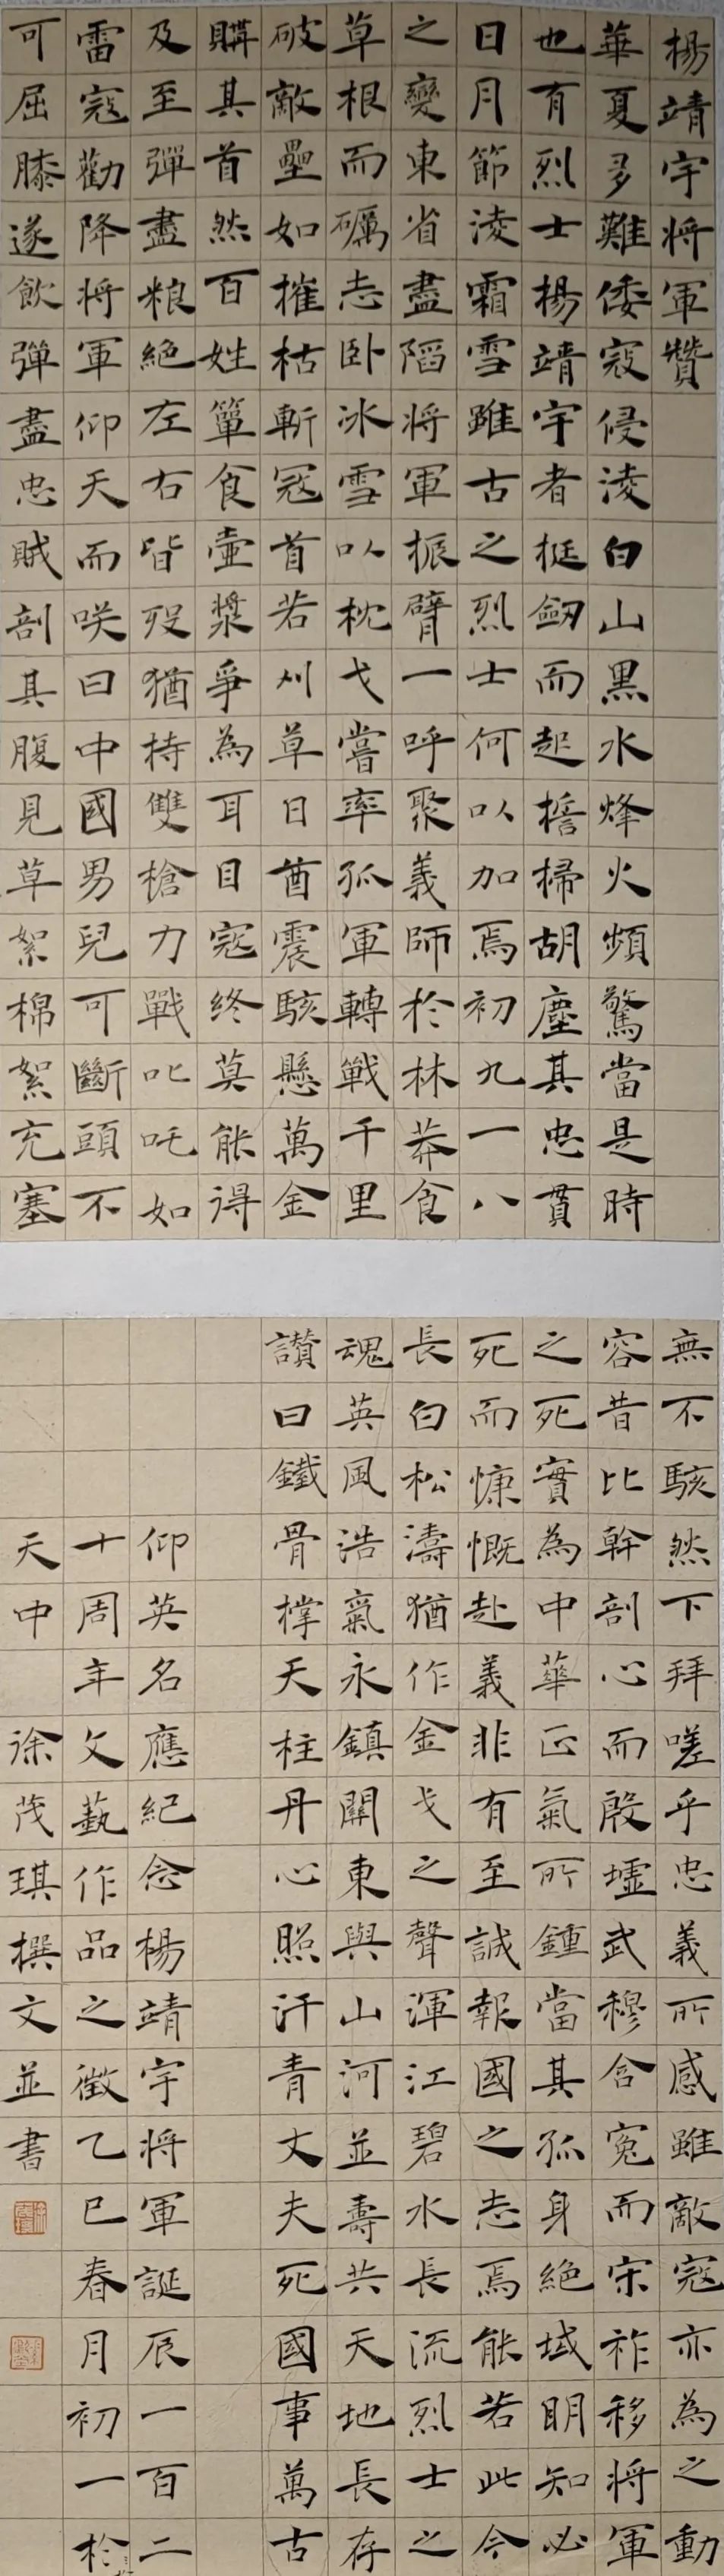 楊靖宇將軍贊
華夏多難倭寇侵淩白山黑水烽火頻驚當是時
也有烈士楊靖宇者挺劒而起誓掃胡塵其忠貫
日月節淩霜雪雖古之烈士何以加焉初九一八
之變東省盡陷將軍振臂一呼聚義師於林莽食
草根而礪志卧冰雪以枕戈嘗率孤軍轉戰千里
破敵壘如摧枯斬寇首若刈草日酋震駭懸萬金
購其首然百姓簞食壺漿爭為耳目寇終莫能得
及至彈盡粮絕左右皆歿猶持雙槍力戰叱吒如
雷寇勸降將軍仰天而咲曰中國男兒可斷頭不
可屈膝遂飲彈盡忠賊剖其腹見草絮棉絮充塞
無不駭然下拜嗟乎忠義所感雖敵寇亦為之動
容昔比幹剖心而殷墟武穆含冤而宋祚移將軍
之死實為中華正氣所鍾當其孤身絕域明知必
死而慷慨赴義非有至誠報國之志焉能若此今
長白松濤猶作金戈之聲渾江碧水長流烈士之
魂英風浩氣永鎮關東與山河並壽共天地長存
讚曰鐵骨撑天柱丹心照汗青丈夫死國事萬古
仰英名應紀念楊靖宇將軍誕辰一百二
十周年文藝作品之徵乙巳春月初一於
天中徐茂琪撰文並書